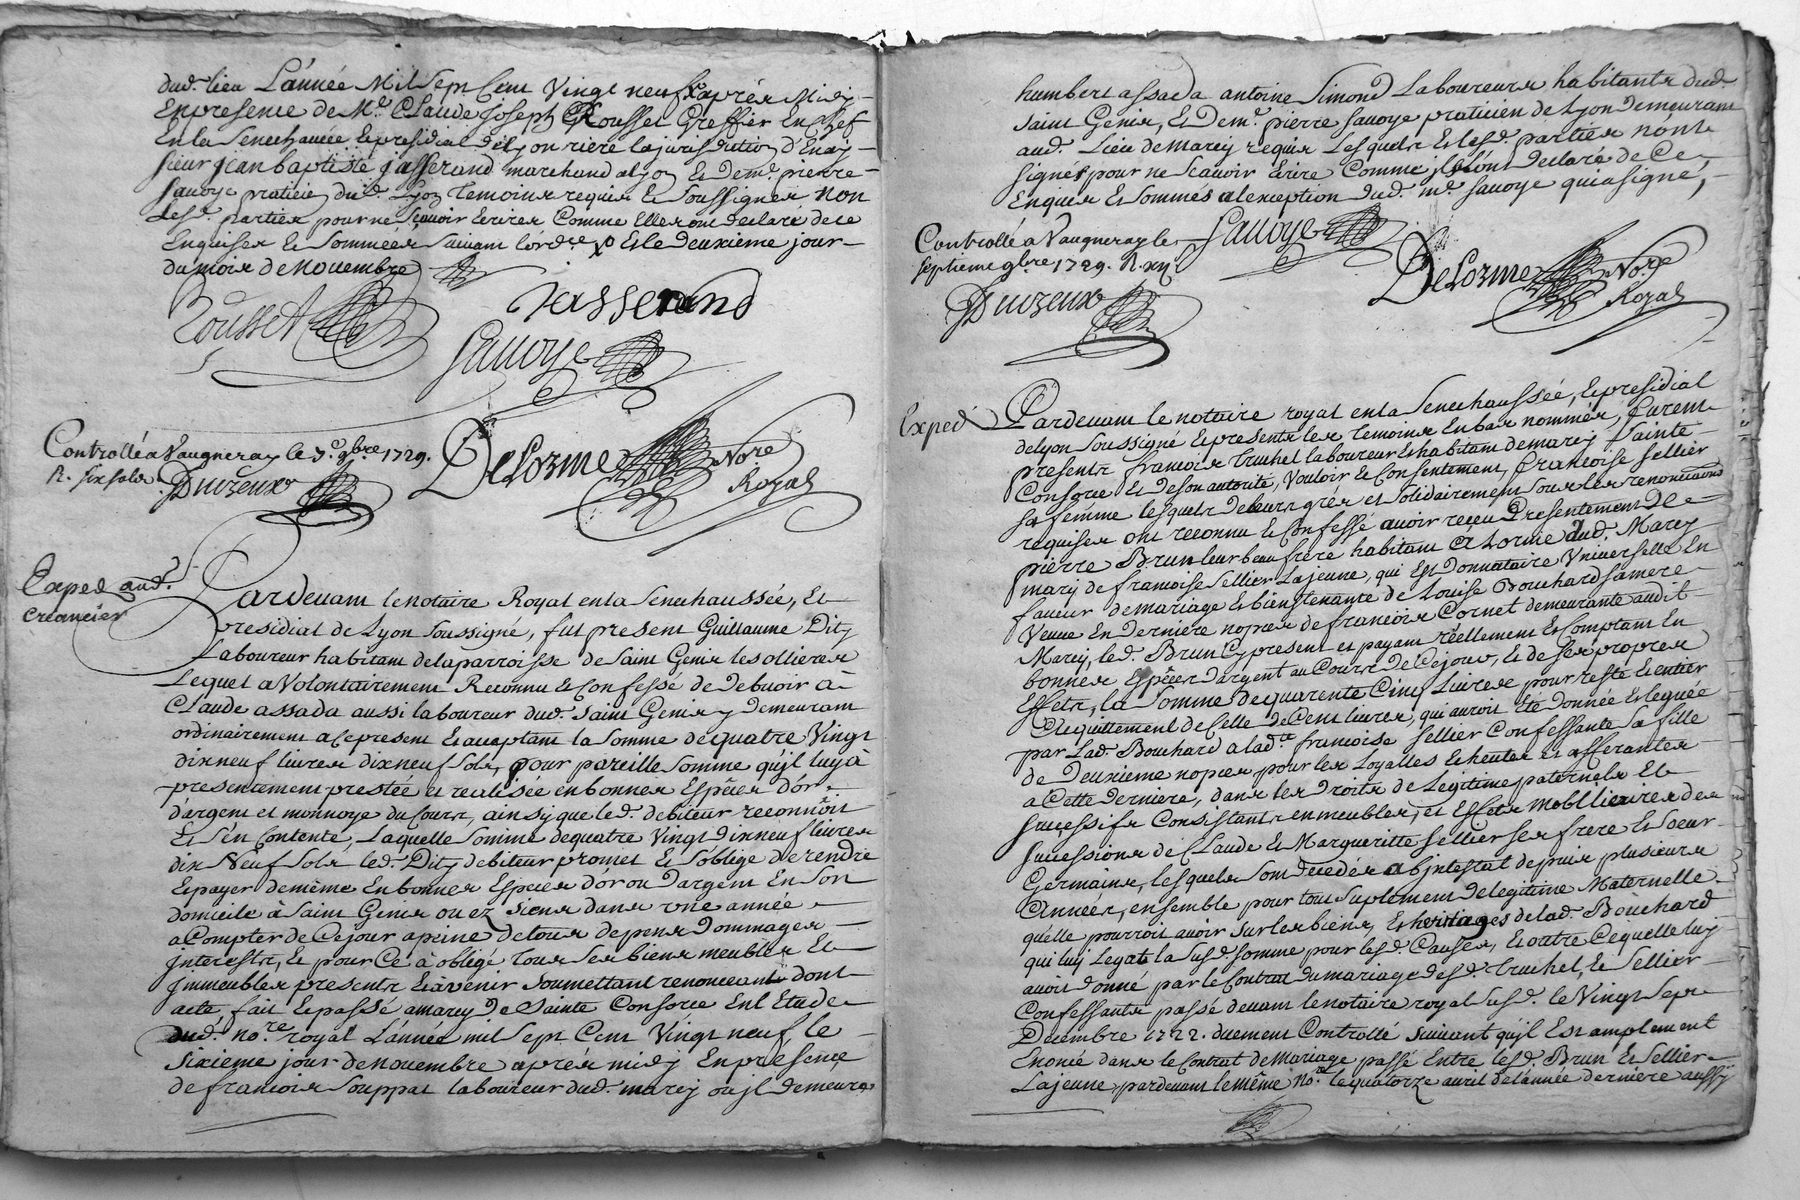 dud. lieu L'année Mil Sept Cent Vingt neuf après Midy
En presence de Me. Claude Joseph Rousset Greffier En Chef
En la Senechaucée Et presidial de Lyon riere la jurisdiction d'
sieur jean baptiste jasserand marchand a lyon Et Deme. pierre
Savoye praticien dud. Lyon temoins requis Et Soussignes, NON
Lesd. parties pour ne sçavoir Ecrires Comme Elles ont declaré de ce
Enquises Et Sommées suivant l'ordce Et le deuxieme jour
du mois de Novembre
Rousset
Jasserand
Savoye
Controllé a Vaugneray le 7e. 9bre 1729.
R. six sols
Duvzeux
Delorme Nore
Royal
Exped aud.
Creancier
Pardevant le notaire Royal en la Senechaussée, Et
presidial de Lyon soussigné, fut present Guillaume Dity
Laboureur habitant de la parroisse de Saint Genis les ollieres
Lequel a Volontairement Reconnu Et Confessé de debvoir à
Claude assada aussi laboureur dud. Saint Genis y demeurant
ordinairement a ce present Et acceptant la somme de quatre Vingt
dix neuf livres dix neuf sols, pour pareille somme qu'jl luy à
presentement prestée et realisée en bonnes Espéces d'or
d'argent et monnoye du Cours, ainsy que led. debiteur reconnoit
Et s'en Contente, Laquelle somme de quatre Vingt dix neuf livres
dix Neuf sols led. Dity debiteur promet Et s'oblige de rendre
Et payer de même En bonnes Espéces d'or ou d'argent En son
domicile à Saint Genis ou ez siens dans une année
a Compter de Ce jour a peine de tous depens Dommages
jnterests, Et pour Ce à obligé tous ses biens meubles Et
jmmeubles presents Et à venir soumettant renonceant dont
acte, fait Et passé a marcy De Sainte Consorce En L'Etude
dud. nore. royal L'année mil sept Cent Vingt neuf, le
sixieme jour de novembre après midy En presence
de francois souppat laboureur dud. marcy ou jl demeure,
humbert assada antoine Simond Laboureurs habitants dud.
saint Genis, Et Deme. pierre savoye praticien de Lyon demeurant
aud. Lieu de marcy requis Lesquels Et lesd. parties n'ont
signés pour ne sçavoir Ecrire Comme jls l'ont declaré de Ce
Enquis Et Sommés a lexception dud. me. savoye qui a signé,
Savoye
Controllé a Vaugneray le
septieme 9bre 1729. R. xij s
Duvzeux
Delorme Nore
Royal
Exped
Pardevant le notaire royal en la Senechaussée, Et presidial
de lyon soussigné Et presents les temoins En bas nommés, furent
presents francois truchet laboureur Et habitant de marcy Sainte
Consorce Et de son autorité, Vouloir Et Consentement, francoise sellier
sa femme lesquels de leurs grés et solidairement sous les renonciations
requises ont reconnu Et Confessé avoir reçeu Presentement De
pierre Brun leur beau frere habitant a Lorme dud. Marcy
mary de francoise Sellier Lajeune, qui Est Donnataire Universelle En
faveur de mariage Et bien tenante de Louise Bouchard sa mere
Veuve En derniere nopces de francois Cornet demeurante audit
Marcy, led. Brun Cy present et payant réellement Et Comptant En
bonnes Espéces d'argent au Cours de Ce jour, Et de ses propres
Effets, la somme de quarente Cinq Livres pour reste Et entier
acquittement de Celle de Cent livres, qui auroit Eté donnée Et leguée
par Lad. Bouchard a ladte. francoise sellier Confessante sa fille
de Deuxieme nopces pour les Loyalles Echeutes et afferantes
a Cette derniere, dans les droits de Legitime paternels Et
sucessifs Consistants en meubles, et Effets mobiliaires des
sucessions de Claude Et Margueritte sellier ses frere Et soeur
Germains, lesquels sont decedés abjntestat depuis plusieurs
années, ensemble pour tout suplement de legitime Maternelle
quelle pourroit avoir sur les biens, Et heritages de lad. Bouchard
qui luy Legat la susd. somme pour lesd. Causes, Et outre Ce quelle luy
avoit donné par le Contrat du mariage desd. truchet, Et sellier
Confessants passé devant le notaire royal susd. le Vingt sept
Decembre 1722. duement Controllé suivant qu'jl Est amplement
Enoncé dans le Contrat de Mariage passé Entre lesd. Brun Et sellier
Lajeune pardevant le même nore. le quatorze avril de l'année derniere aussy